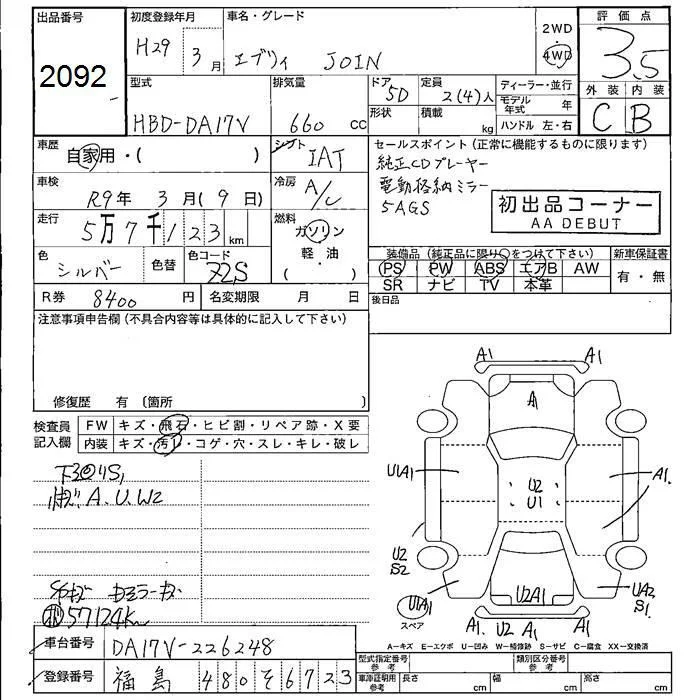 出品番号
2092
初度登録年月
H29年3月
車名・グレード
エブリィ JOIN
2WD
4WD
評価点
3.5
外装 内装
C B
型式
HBD-DA17V
排気量
660 cc
ドア
5D
形状
定員
2(4)人
積載
kg
ディーラー・並行
モデル年式 年
ハンドル 左・右
車歴
自家用・( )
シフト
IAT
車検
R9年 3月(9日)
冷房
A/C
走行
5万7千123km
燃料
ガソリン
軽・油
( )
色
シルバー
色替
色コード
Z2S
R券 8400円
名変期限 月 日
セールスポイント(正常に機能するものに限ります)
純正CDプレーヤー
電動格納ミラー
5AGS
初出品コーナー
AA DEBUT
装備品(純正品に限り○をつけて下さい)
PS PW ABS エアB AW
SR ナビ TV 本革
新車保証書
有・無
後日品
注意事項申告欄(不具合内容等は具体的に記入して下さい)
修復歴 有 〔箇所 〕
検査員
記入欄
FW キズ・飛石・ヒビ割・リペア跡・X要
内装 キズ・汚レ・コゲ・穴・スレ・キレ・破レ
A.U.W2
57124K
車台番号 DA17V-226248
登録番号 福島 480 そ 6723
A1
A1
A
U1A1
A1.
U2
U1
U2
S2
U1A1
スペア
U2A1
UA2
S1.
A1. U2 A1 A1.
A-キズ E-エクボ U-凹み W-補修跡 S-サビ C-腐食 XX-交換済
型式指定番号
参考
類別区分番号
参考
車庫証明用
参考
長さ cm
幅 cm
高さ cm